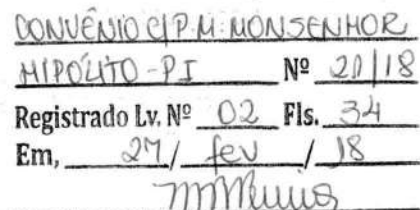 CONVÊNIO C/P.M. MONSENHOR
HIPÓLITO-PI Nº 20/18
Registrado Lv. Nº 02 Fls. 34
Em, 27/ fev / 18